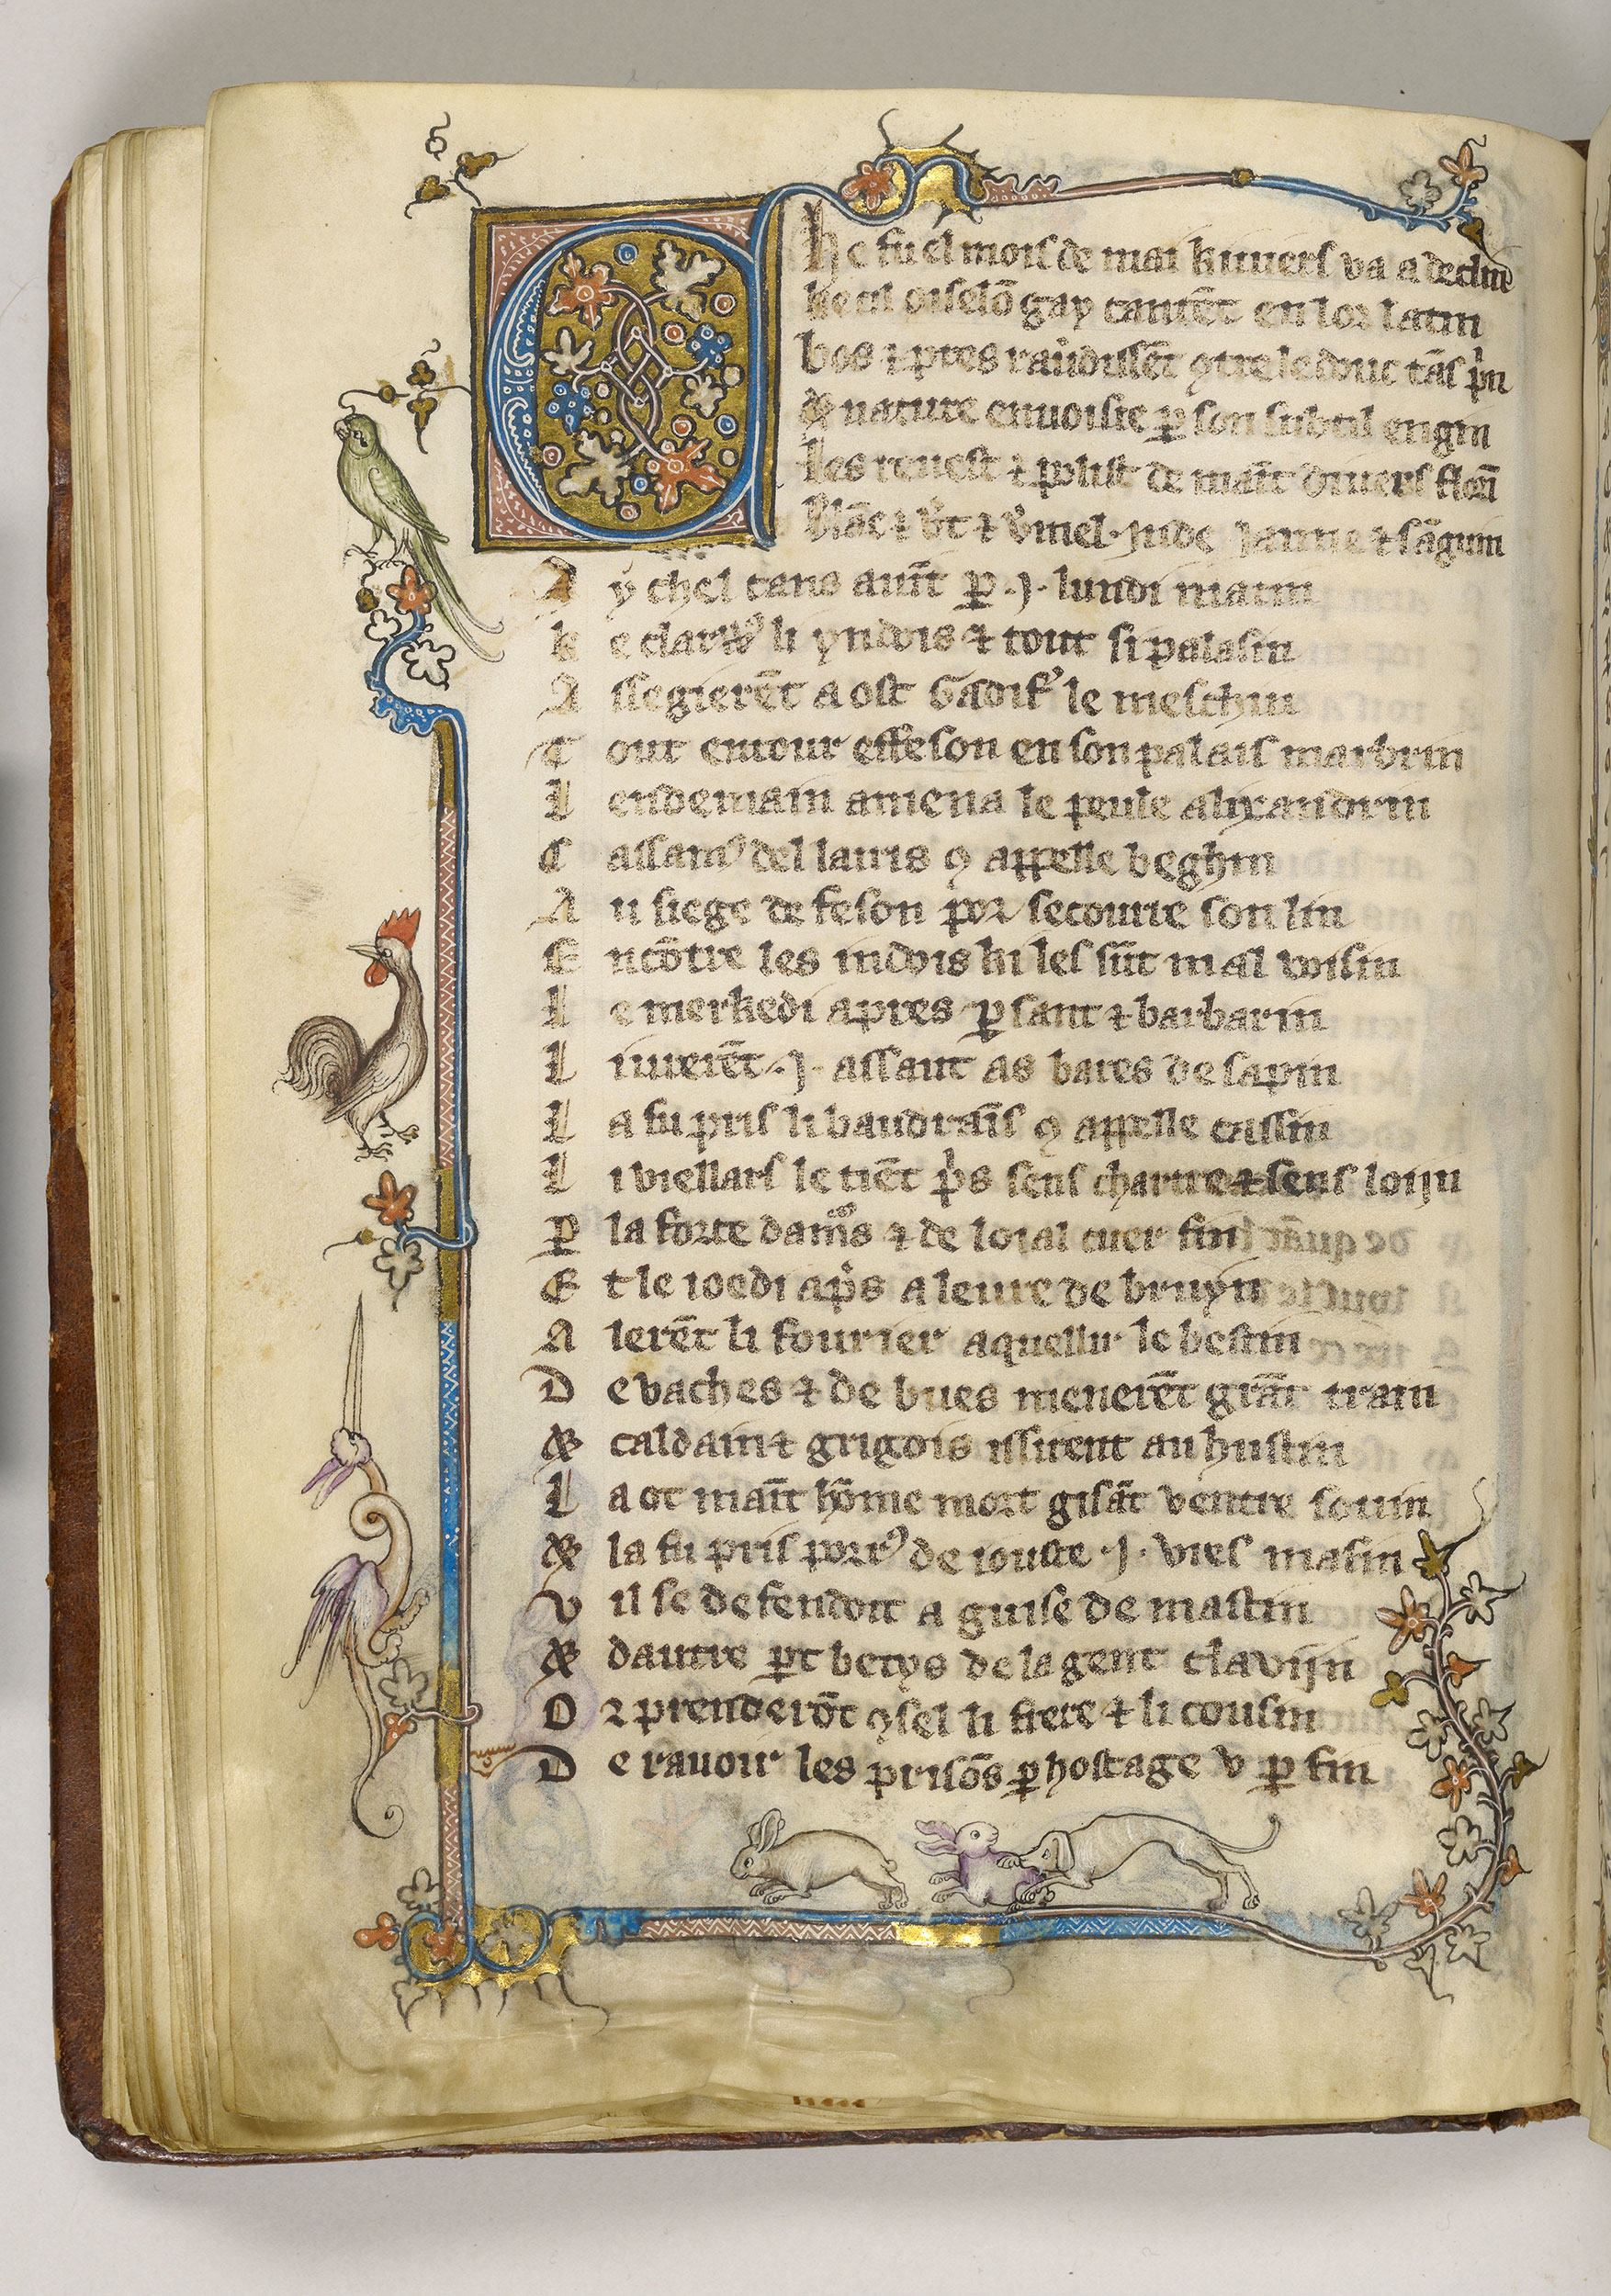 C he fu el mois de mai ki yuers va a declin
ke cil oiselō gay cantēt en lor latin
bos ⁊ pres raūdissēt ꝯtre le douc tās
⁊ nature enuoisie ꝑ son subtil engin
les reuest ⁊ de māīt diuers
⁊ ⁊ vmel . ynde Jaune ⁊ sāguin
A y chel tans auīt ꝑ .j. lundi matin
k e clarꝰ li yndois ⁊ tout si palasin
A ssegierēt a ost Gadifʼ le meschin
T out entour effeson en son palais marbrin
L endemain amena le peule alixandrin
C assamꝰ del lauris ꝯ appelle beghin
A u siege de feson por secourre son lin
E ncōtre les indois ki les sūt mal voisin
L e merkedi apres ꝑsant ⁊ barbarin
L iurerēt .j. assaut as bares de sapin
L a fu pris li baudraīs ꝯ appelle cassin
L i viellars le tiēt pͥs sens chartre ⁊ sens loijn
P la forte damᵒˢs ⁊ de loial cuer fin
E t le ioedi apͥs a leure de bruyn
A lerēt li fourier aquellir le bestin
D e vaches ⁊ de bues menerēt grāt train
⁊ caldain ⁊ grigois issirent au hustin
L a ot maīt hōme mort gisāt ventre souin
⁊ la fu pris porꝰ de iouste .j. viel masin
V il se defendoit a guise de mastin
⁊ dautre ꝑt betys de la gent clavijn
O r prenderōt ꝯsel li frere ⁊ li cousin
D e rauoir les prisōs ꝑ hostage v ꝑ fin